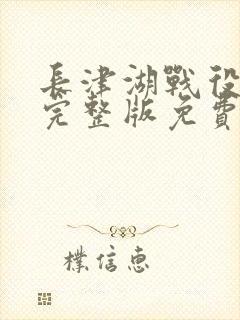 長津湖戰役
完整版免費
樸信惠